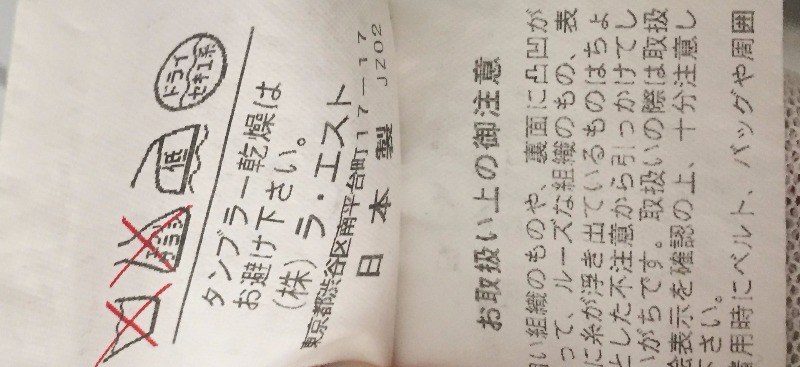 低
ドライ
セキユ系
タンブラー乾燥は
お避け下さい。
(株)ラ・エスト
東京都渋谷区南平台町17-17
日本製 JZ02
お取扱い上の御注意
い組織のものや、裏面に凸凹が
って、ルーズな組織のもの、表
に糸が浮き出ているものはちょ
とした不注意から引っかけてし
いがちです。取扱いの際は取扱
絵表示を確認の上、十分注意し
下さい。
着用時にベルト、バッグや周囲